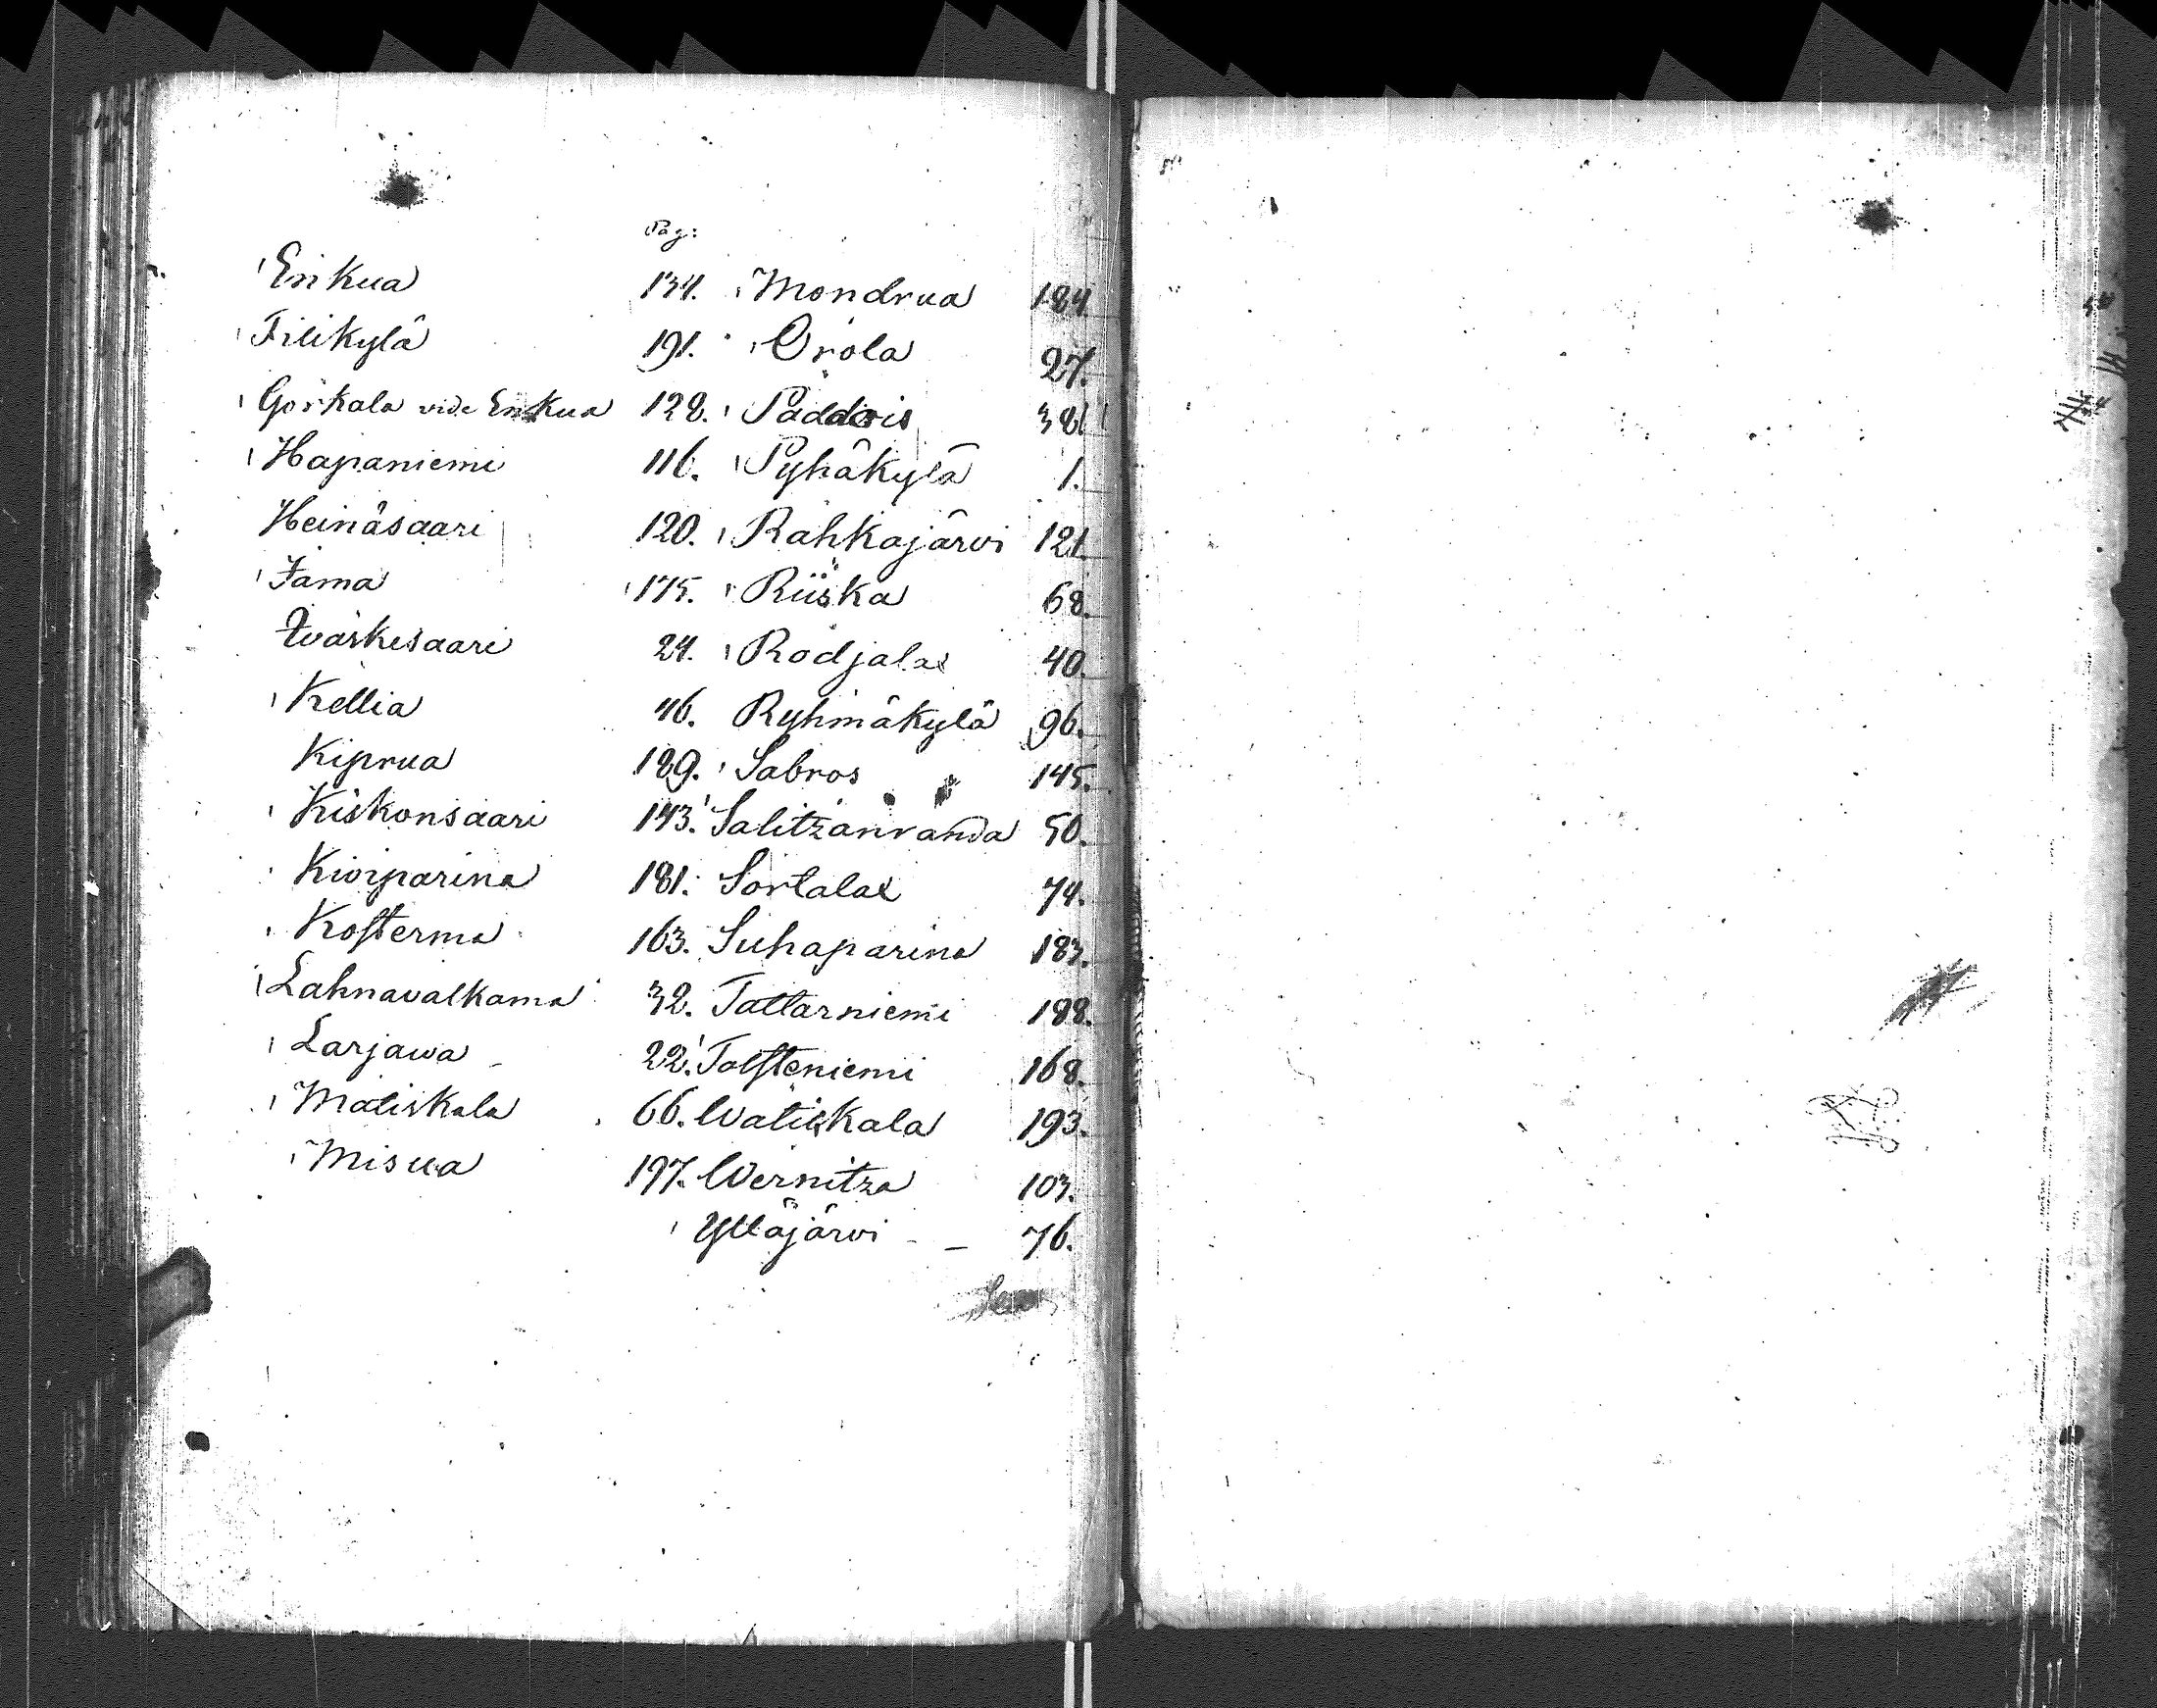 Pag:
Enkua 134. Mondrua 184
Filikylä 191. Orola 27.
Gorkala vide Enkua 128. Padderis 38
Hapaniemi 116. Pyhäkylä 1.
Heinäsaari 120. Rahkajärvi 121.
Jama 175. Riiska 68.
24. Rodjala 40.
Kellia 46. Ryhmäkylä 96.
Kiprua 189. Sabros 145.
Kiskonsaari 143. Salitzanranda 50.
Kiviparina 181. Sortalax 74.
Kosterma 163. Suhaparina 183.
Lahnavalkama 32. Tattarniemi 188.
Larjawa 22. Tolsteniemi 168.
Matiskala 66. Watiskala 193.
Misua 197. Wernitza 103.
Ylläjärvi - - 76.